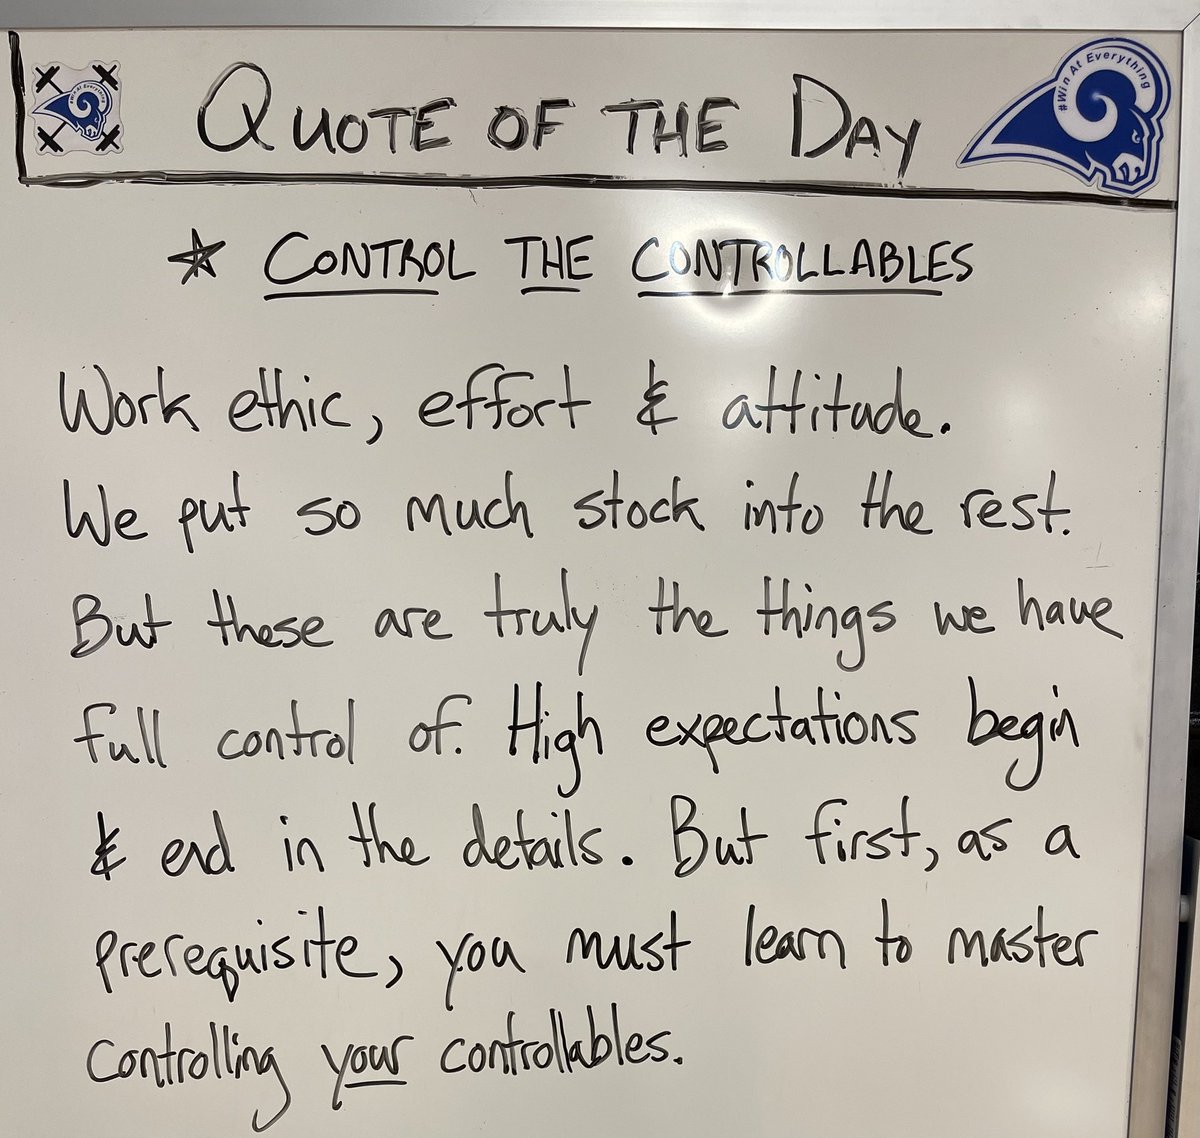 #Win At Everything
QUOTE OF THE DAY
#Win At Everything
☆ CONTROL THE CONTROLLABLES
Work ethic, effort & attitude.
We put so much stock into the rest.
But these are truly the things we have
full control of. High expectations begin
& end in the details. But first, as a
prerequisite, you must learn to master
controlling your controllables.